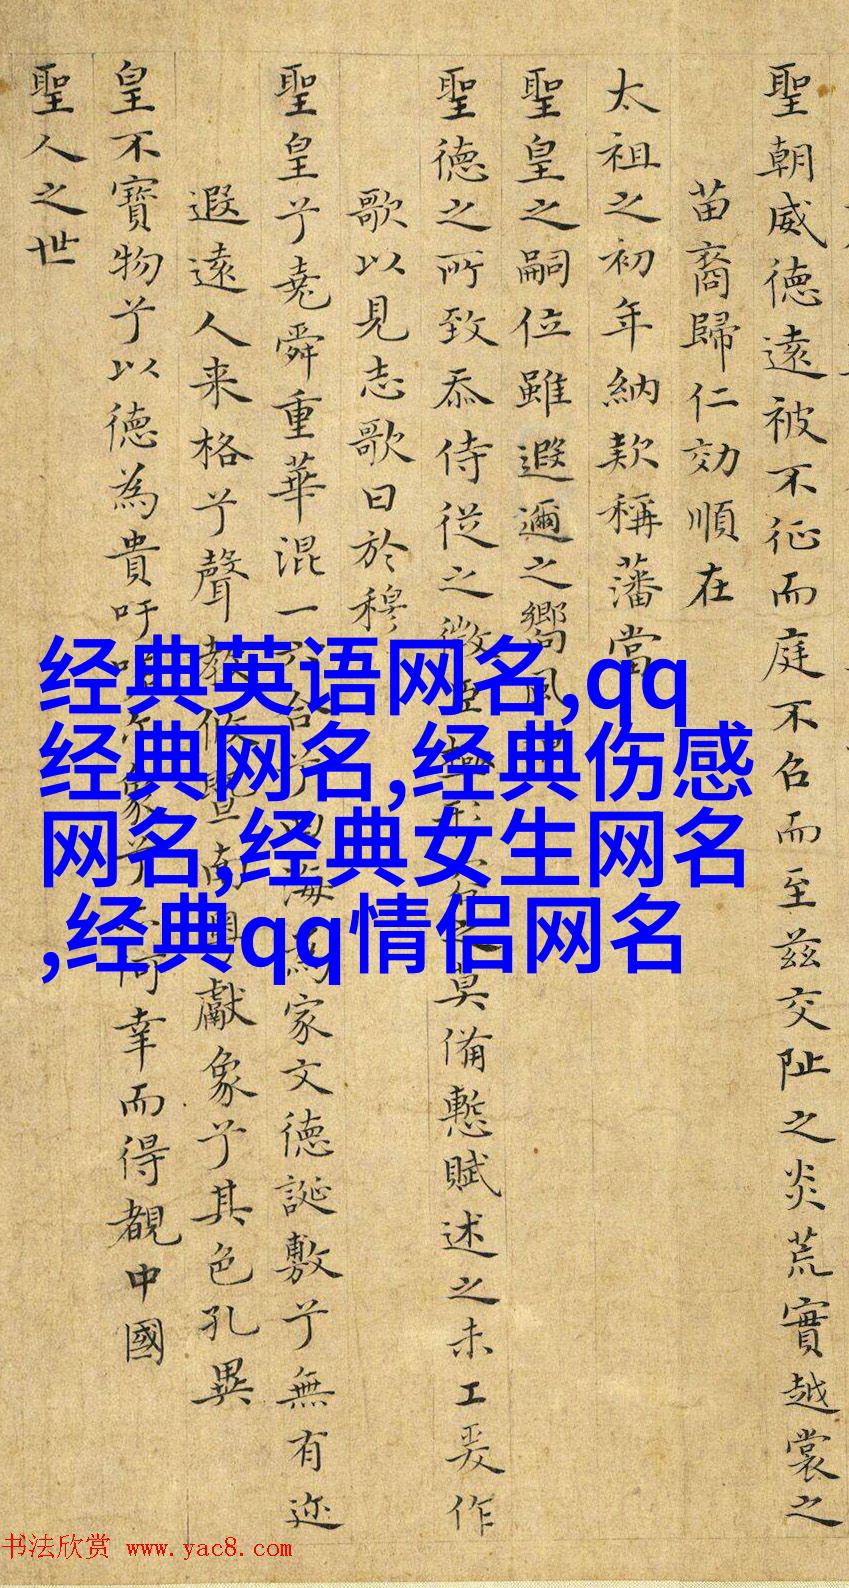 聖朝威德遠被不征而庭不召而至茲交阯之炎荒實越裳之
苗裔歸仁効順在
太祖之初年納款稱藩當
聖皇之嗣位雖遐邇之嚮風
聖德之所致忝侍從之微臣形容之莫備慙賦述之未工爰作
歌以見志歌曰於穆
聖皇兮堯舜重華混一六合兮四海為家文德誕敷兮無有迩
遐遠人来格兮聲教攸暨南獻象兮其色孔異
皇不寶物兮以德為貴吁象兮何幸而得覩中國
聖人之世
经典英语网名,qq
经典网名,经典伤感
网名,经典女生网名
,经典qq情侣网名
书法欣赏 www.yac8.com